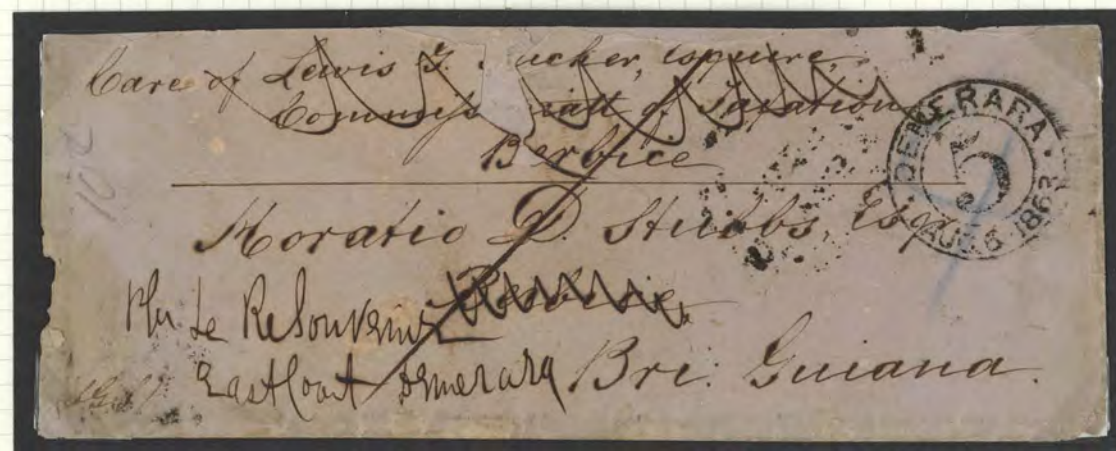 Care of Lewis F. ucker, Esquire,
Commiss iatt of Taxation
Berbice
Horatio D. Stubbs, Esq
Berbice
Pln Le Resouvenir
East Coast Demerara Bri: Guiana.
DEMERARA
5
AUG 6 1863
10c